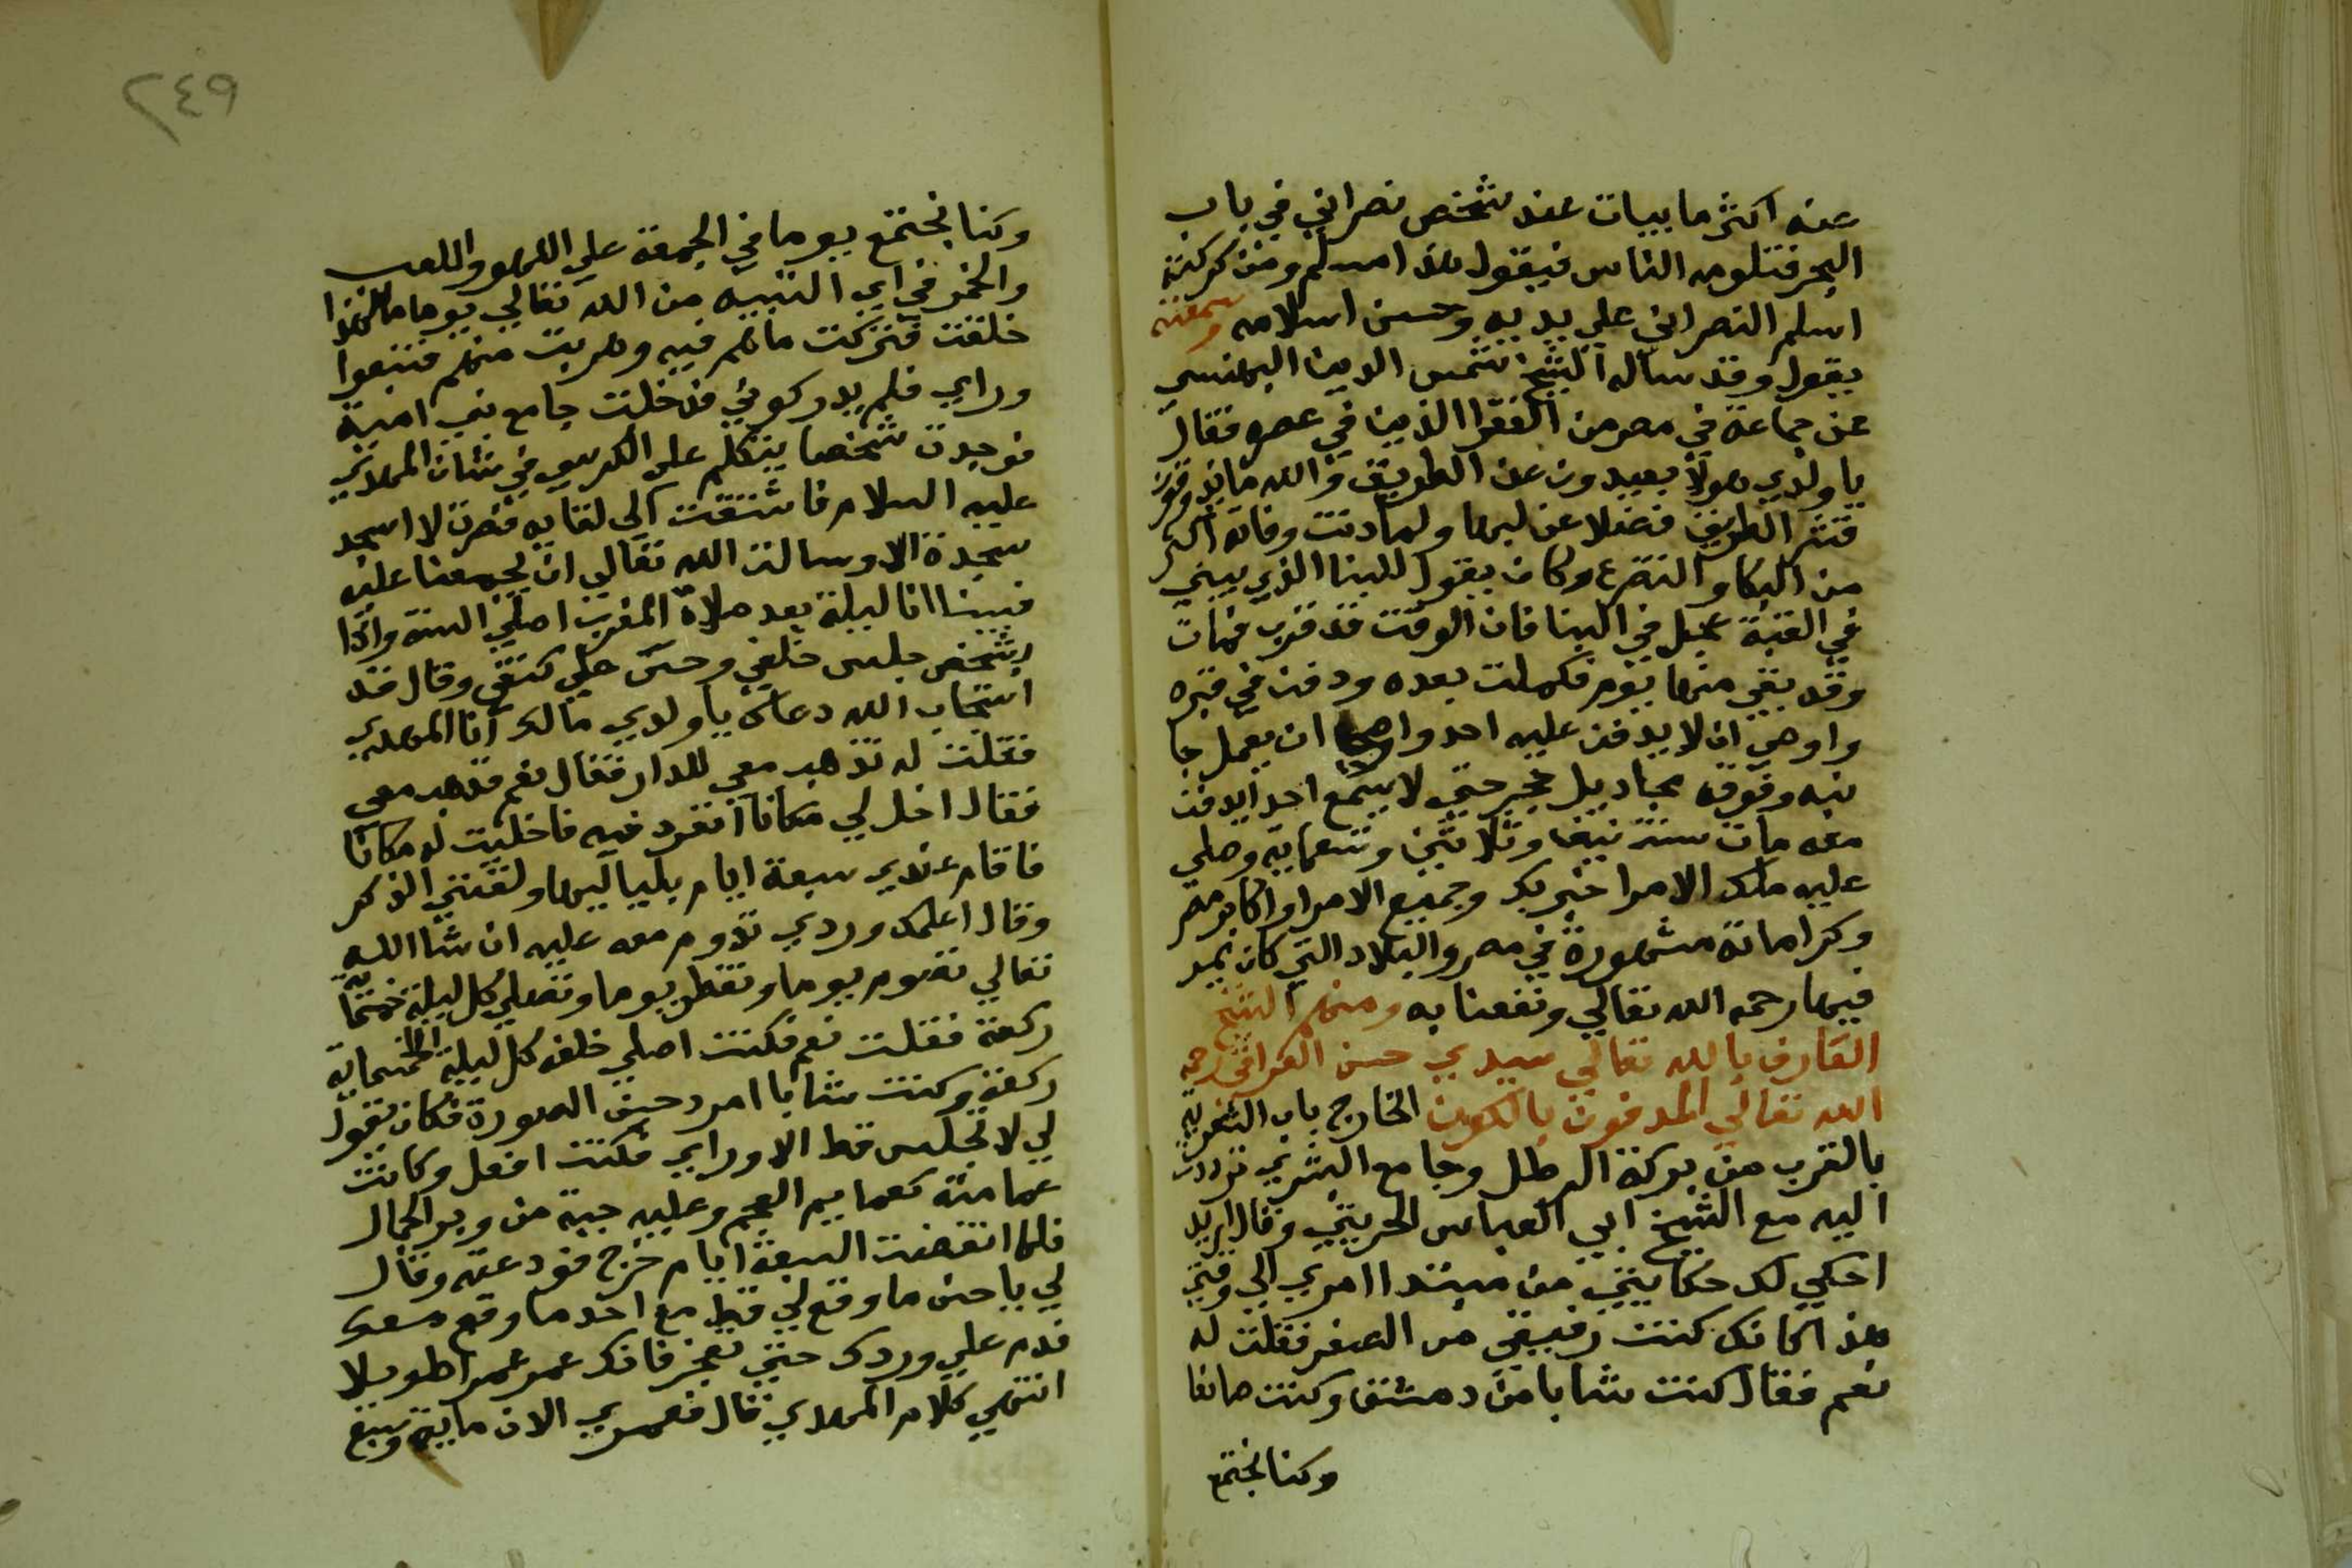 عنه اكثر ما يبات عند شخص نصراني في باب
البحر فتلومه الناس فيقول هذا مسلم ومن بركته
اسلم النصراني علي يديه وحسن اسلامه وسمعته
يقول وقد ساله الشيخ شمس الدين البهنسي
عن جماعة في مصر من الفقرا الذين في عصره فقال
يا ولدي هولا بعيدون عن الطريق والله ما يذوقون
قشر الطريق فضلا عن لبها ولما دنت وفاته اكثر
من البكا والتضرع وكان يقول للبنا الذي يبني
في القبة عجل في البنا فان الوقت قد قرب فمات
وقد بقي منها يوم فكملت بعده ودفن في قبره
واوصي ان لا يدفن عليه احد واوصي ان يعمل جا
نبه وفوقه مجاديل حجر حتي لا يسع احدا يدفن
معه مات سنة نيف وثلاثين وتسعماية وصلي
عليه ملك الامرا خيربك وجميع الامرا واكابر مصر
وكراماته مشهورة في مصر والبلاد التي كان يمر
فيها رحمه الله تعالي ونفعنا به ومنهم الشيخ
العارف بالله تعالي سيدي حسن العراقي رحمه
الله تعالي المدفون بالكوم الخارج باب الشعرية
بالقرب من بركة الرطل وجامع البشري ترددت
اليه مع الشيخ ابي العباس الحريثي وقال اريد
احكي لك حكايتي من مبتدا امري الي وقتي
هذا كانك كنت رفيقي من الصغر فقلت له
نعم فقال كنت شابا من دمشق وكنت صانعا
وكنا نجتمع
٢٤٩
وكنا نجتمع يوما في الجمعة علي اللهو واللعب
والخمر فجاي التنبيه من الله تعالي يوما ما لهذا
خلقت فتركت ما هم فيه وهربت منهم فتبعوا
وراي فلم يدركوني فدخلت جامع بني امية
فوجدت شخصا يتكلم علي الكرسي في شان المهدي
عليه السلام فاشتقت الي لقايه فصرت لا اسجد
سجدة الا وسالت الله تعالي ان يجمعنا عليه
فبينا انا ليلة بعد صلاة المغرب اصلي السنة واذا
بشخص جلس خلفي وحس علي كتفي وقال قد
استجاب الله دعاك يا ولدي مالك انا المهدي
فقلت له تذهب معي للدار فقال نعم فذهب معي
فقال اخل لي مكانا انفرد فيه فاخليت له مكانا
فاقام عندي سبعة ايام بلياليها ولقنني الذكر
وقال اعلمك وردي تدوم معه عليه ان شا الله
تعالي تصوم يوما وتفطر يوما وتصلي كل ليلة خمسماية
ركعة فقلت نعم فكنت اصلي خلفه كل ليلة الخمسماية
ركعة وكنت شابا امرد حسن الصورة فكان يقول
لي لا تجلس قط الا وراي فكنت افعل وكانت
عمامته كعمايم العجم وعليه جبة من وبر الجمال
فلما انقضت السبعة ايام خرج فودعته وقال
لي يا حسن ما وقع لي قط مع احد ما وقع معك
فدم علي وردك حتي تعجز فانك عمر عمرا طويلا
انتهي كلام المهدي قال فعمري الان ماية وسبع